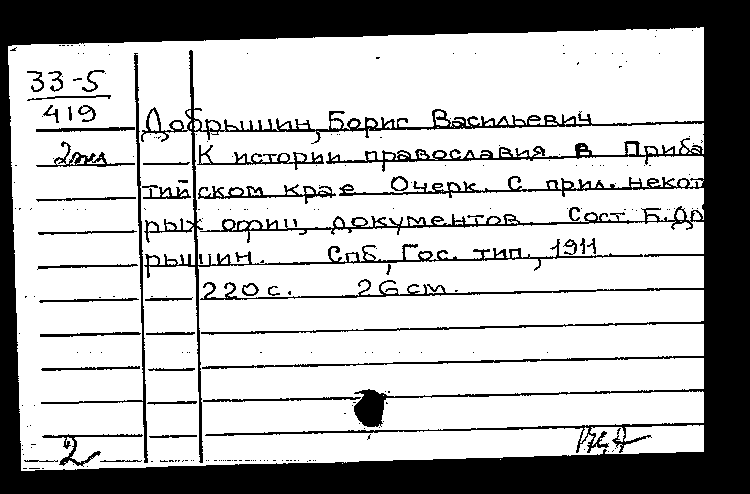 33-5
419
Добрышин, Борис Васильевич
2 экз
К истории православия в Приба
тийском крае. Очерк. С прил. некот
рых офиц. документов. Сост. Б. До
рышин. Спб., Гос. тип., 1911
220 с. 26 см.
2